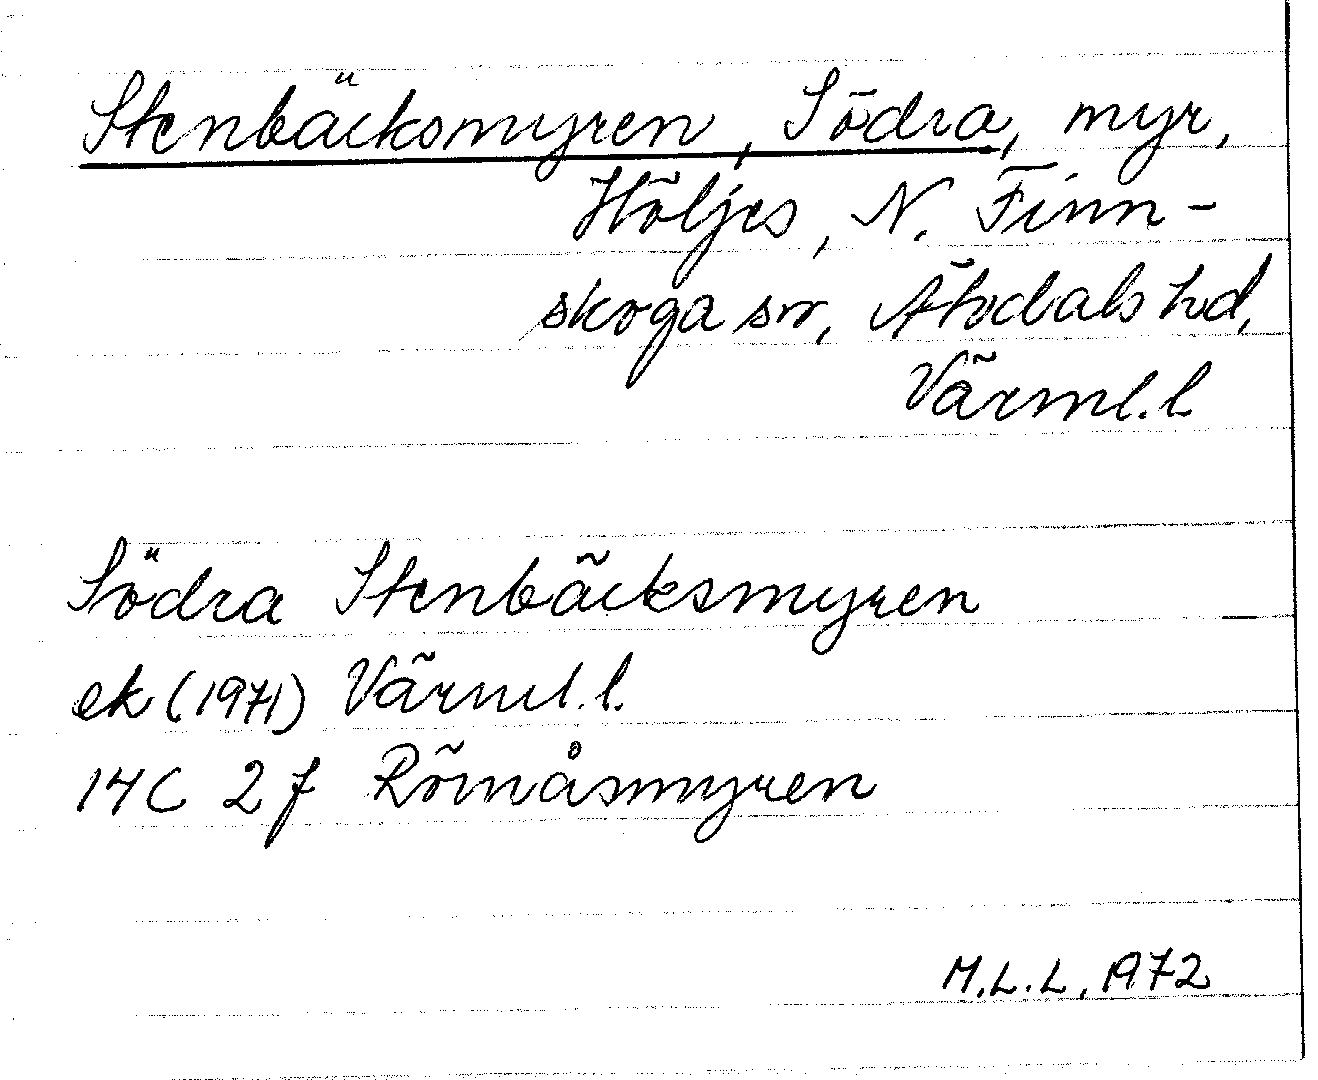 Stenbäcksmyren, Södra, myr,
Höljes, N. Finn-
skoga sn, Älvdals hd,
Värml.l
Södra Stenbäcksmyren
ek (1971) Värml.l.
14C 2f Römåsmyren
M.L.L. 1972